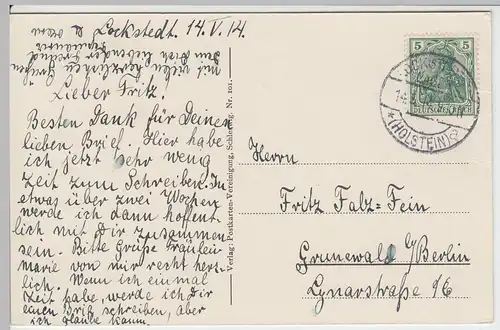 Lockstedt. 14.V.14.
mit vielen herzlichen Grüßen
Dein Dich liebender Freund
Lieber Fritz.
Besten Dank für Deinen
lieben Brief. Hier habe
ich jetzt sehr wenig
Zeit zum Schreiben. In
etwas über zwei Wochen
werde ich dann hoffent-
lich mit Dir zusammen
sein. Bitte grüße Fräulein
Marie von mir recht herz-
lich. Wenn ich einmal
Zeit habe, werde ich Dir
einen Brief schreiben, aber
ich glaube kaum.
Verlag: Postkarten-Vereinigung, Schleswig. Nr. 101.
5 5
DEUTSCHES REICH
*(HOLSTEIN)*
Herrn
Fritz Falz=Fein
Grunewald b/Berlin
Lynarstraße 96